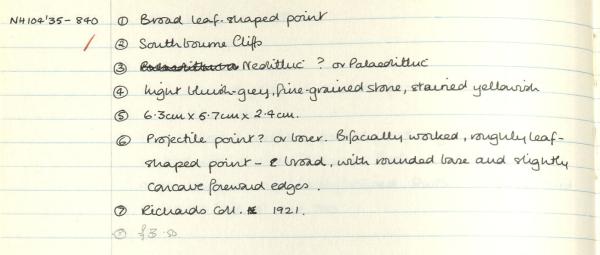 NH104'35-840 ① Broad leaf-shaped point
② Southbourne Cliffs
③ Neolithic ? or Palaeolithic
④ Light bluish-grey, fine-grained stone, stained yellowish
⑤ 6.3cm x 5.7cm x 2.4cm.
⑥ Projectile point? or borer. Bifacially worked, roughly leaf-
shaped point - broad, with rounded base and slightly
concave forward edges.
⑦ Richards Coll. 1921.
£3.50